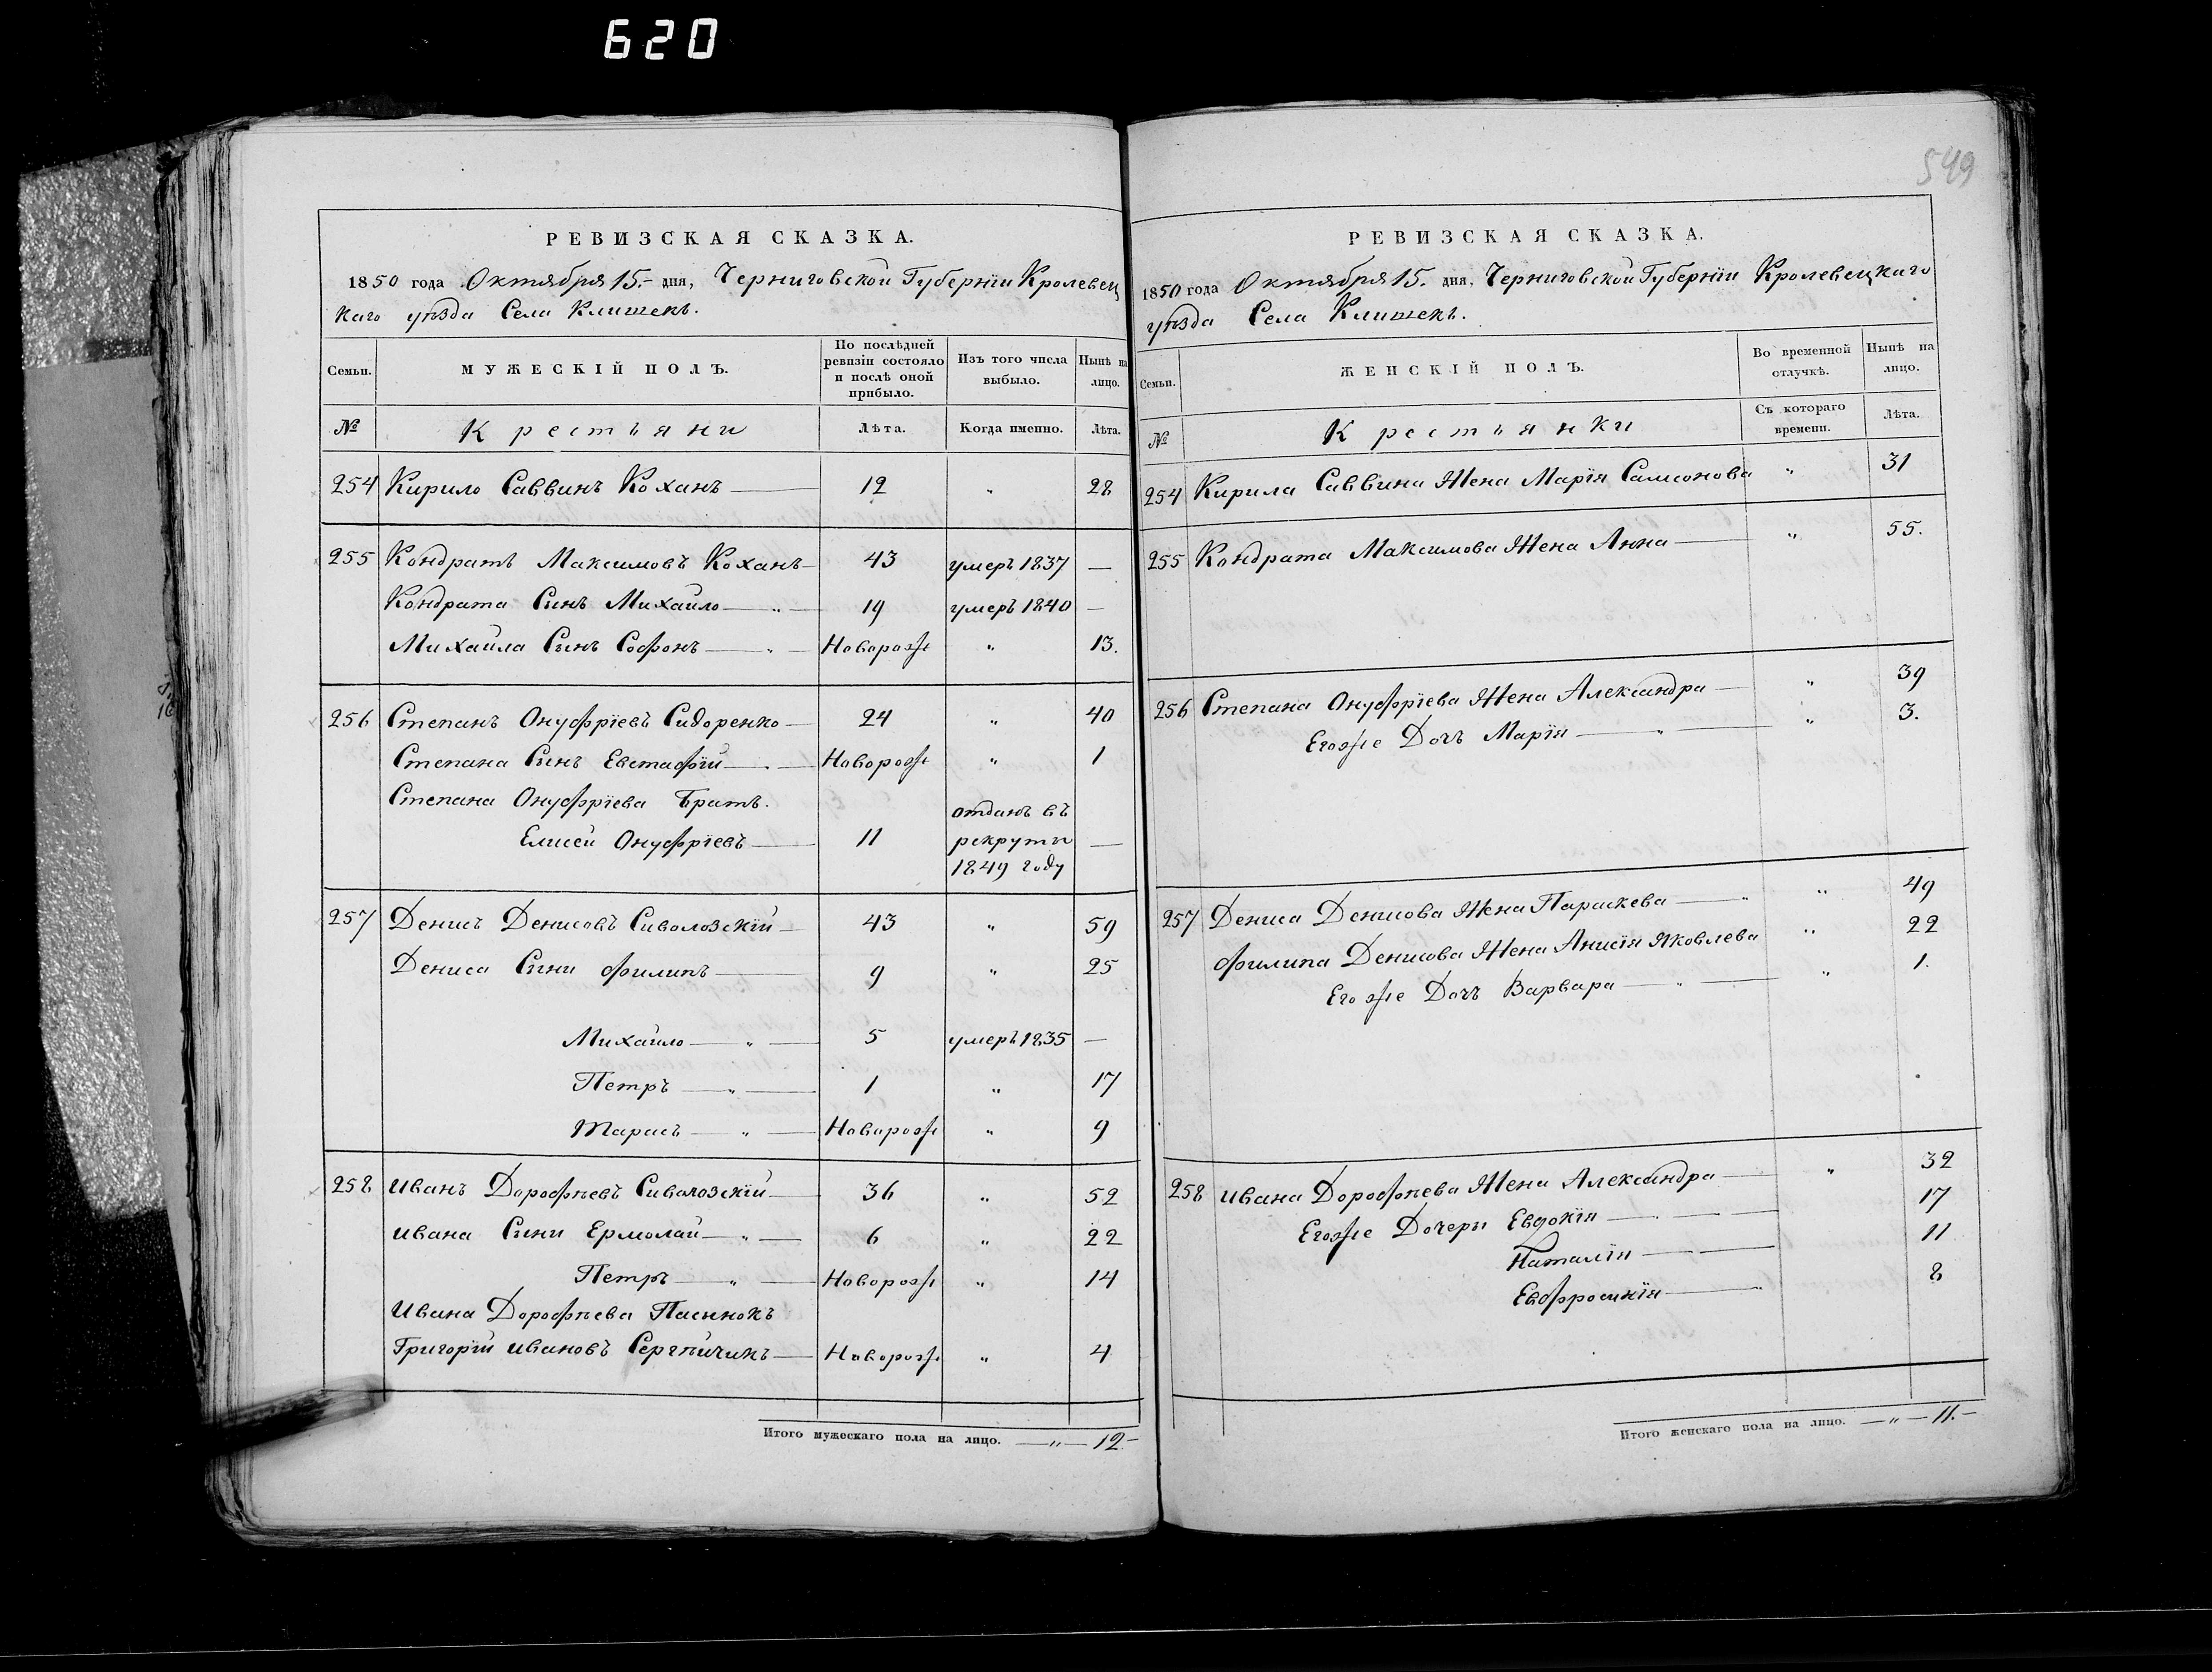 620
549
РЕВИЗСКАЯ СКАЗКА.
1850 года Октября 15.- дня, Черниговской Губерніи Кролевец
каго уѣзда Села Клишекъ.
Семьи. МУЖЕСКІЙ ПОЛЪ. По послѣдней ревизіи состояло и послѣ оной прибыло. Изъ того числа выбыло. Нынѣ на лицо.
№ Крестьяни Лѣта. Когда именно. Лѣта.
254 Кирило Саввинъ Коханъ — 12 „ 28
255 Кондратъ Максимовъ Коханъ — 43 умеръ 1837 —
Кондрата Сынъ Михайло — „ — 19 умеръ 1840 —
Михайла Сынъ Софонъ — „ — Новорож „ 13.
256 Степанъ Онуфріевъ Сидоренко — 24 „ 40
Степана Сынъ Евстафій — Новорож „ 1
Степана Онуфріева Братъ.
Елисей Онуфріевъ — 11 отданъ въ рекруты 1849 году —
257 Денисъ Денисовъ Сиволозскій — 43 „ 59
Дениса Сыни Филипъ — 9 „ 25
Михайло — „ — 5 умеръ 1835 —
Петръ — „ — 1 „ 17
Тарасъ — „ — Новорож „ 9
258 Иванъ Дорофѣевъ Сиволозскій — 36 „ 52
Ивана Сыни Ермолай — „ — 6 „ 22
Петръ — „ — Новорож „ 14
Ивана Дорофѣева Пасынокъ
Григорій Ивановъ Сергѣйчикъ — Новорож „ 4
Итого мужескаго пола на лицо. — „ — 12.-
РЕВИЗСКАЯ СКАЗКА.
1850 года Октября 15. дня, Черниговской Губерніи Кролевецкаго
уѣзда Села Клишекъ.
Семьи. ЖЕНСКІЙ ПОЛЪ. Во временной отлучкѣ. Нынѣ на лицо.
№ Крестьянки Съ котораго времени. Лѣта.
254 Кирила Саввина Жена Марія Самсонова „ 31
255 Кондрата Максимова Жена Анна — „ 55.
256 Степана Онуфріева Жена Александра — „ 39
Егоже Дочъ Марія — „ — „ 3.
257 Дениса Денисова Жена Параскева — „ „ 49
Филипа Денисова Жена Анисія Яковлева „ 22
Егоже Дочъ Варвара — „ — „ 1.
258 Ивана Дорофѣева Жена Александра — „ 32
Егоже Дочери Евдокія — 17
Наталія — 11
Евфросинія — 8
Итого женскаго пола на лицо. — „ — 11.-